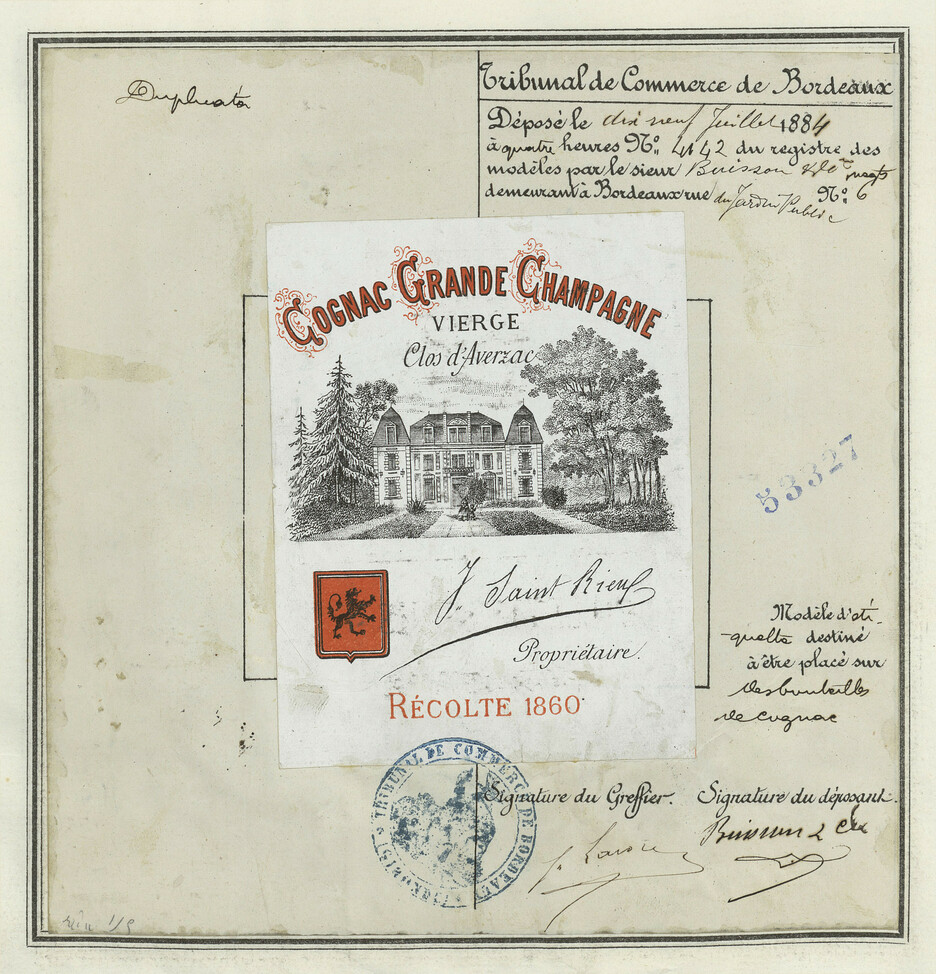 Duplicata
Tribunal de Commerce de Bordeaux
Déposé le dix neuf Juillet 1884
à quatre heures No. 4142 du registre des
modèles par le sieur Buisson & Cie negts
demeurant à Bordeaux rue du Jardin Public No. 6
COGNAC GRANDE CHAMPAGNE
VIERGE
Clos d'Averzac
53327
J. Saint Rieul
Propriétaire.
RÉCOLTE 1860
Modèle d'éti-
quette destiné
à être placé sur
des bouteilles
de Cognac
TRIBUNAL DE COMMERCE DE BORDEAUX
Signature du Greffier. Signature du déposant.
Buisson & Cie